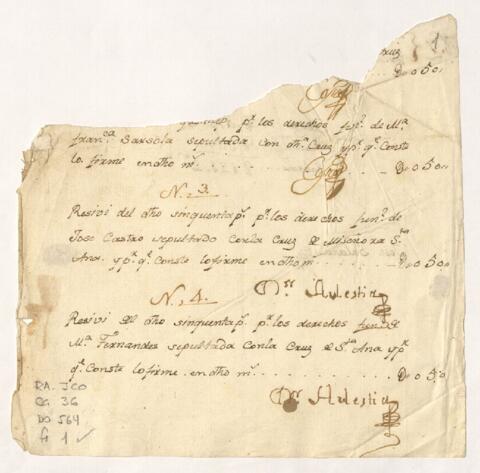 Cruz
1
050
pr. los derechos fun.s de Ma.
franca. Sarsola sepultada con otra. Cruz ypa. qe. Conste
lo firme en otho ms. . . . 050
N. 3
Resivi del otho sinquenta ps. pr. los derechos funs. de
Jose Castro sepultado Con la Cruz de Miseñora Sta
Ana. ypa. qe. Conste lo firme en otho m . . . . 050
Aulestia
N. 4.
Resivi del otho sinquenta ps. pr. los derechos funs. de
Ma. Fernandes sepultada Con la Cruz de Sta. Ana ypa.
qe. Conste lo firme en otho ms. . . . . . . . . . . 050
Aulestia
RA. JCO
CG. 36
DO 564
f. 1 ✓